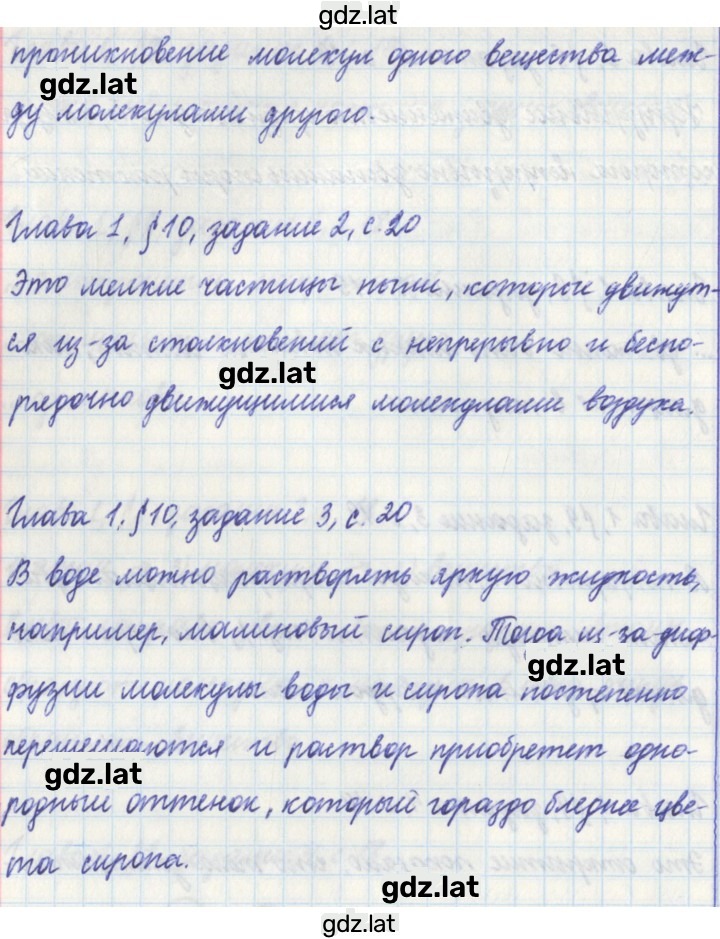 gdz.lat
проникновение молекул одного вещества меж-
gdz.lat
ду молекулами другого.
Глава 1, §10, задание 2, с.20
Это мелкие частицы пыли, которые движут-
ся из-за столкновений с непрерывно и беспо-
gdz.lat
рядочно движущимися молекулами воздуха.
Глава 1, §10, задание 3, с.20
В воде можно растворять яркую жидкость,
например, малиновый сироп. Тогда из-за диф-
gdz.lat
фузии молекулы воды и сиропа постепенно
перемешаются и раствор приобретет одно-
gdz.lat
родный оттенок, который гораздо бледнее цве-
та сиропа.
gdz.lat
gdz.lat